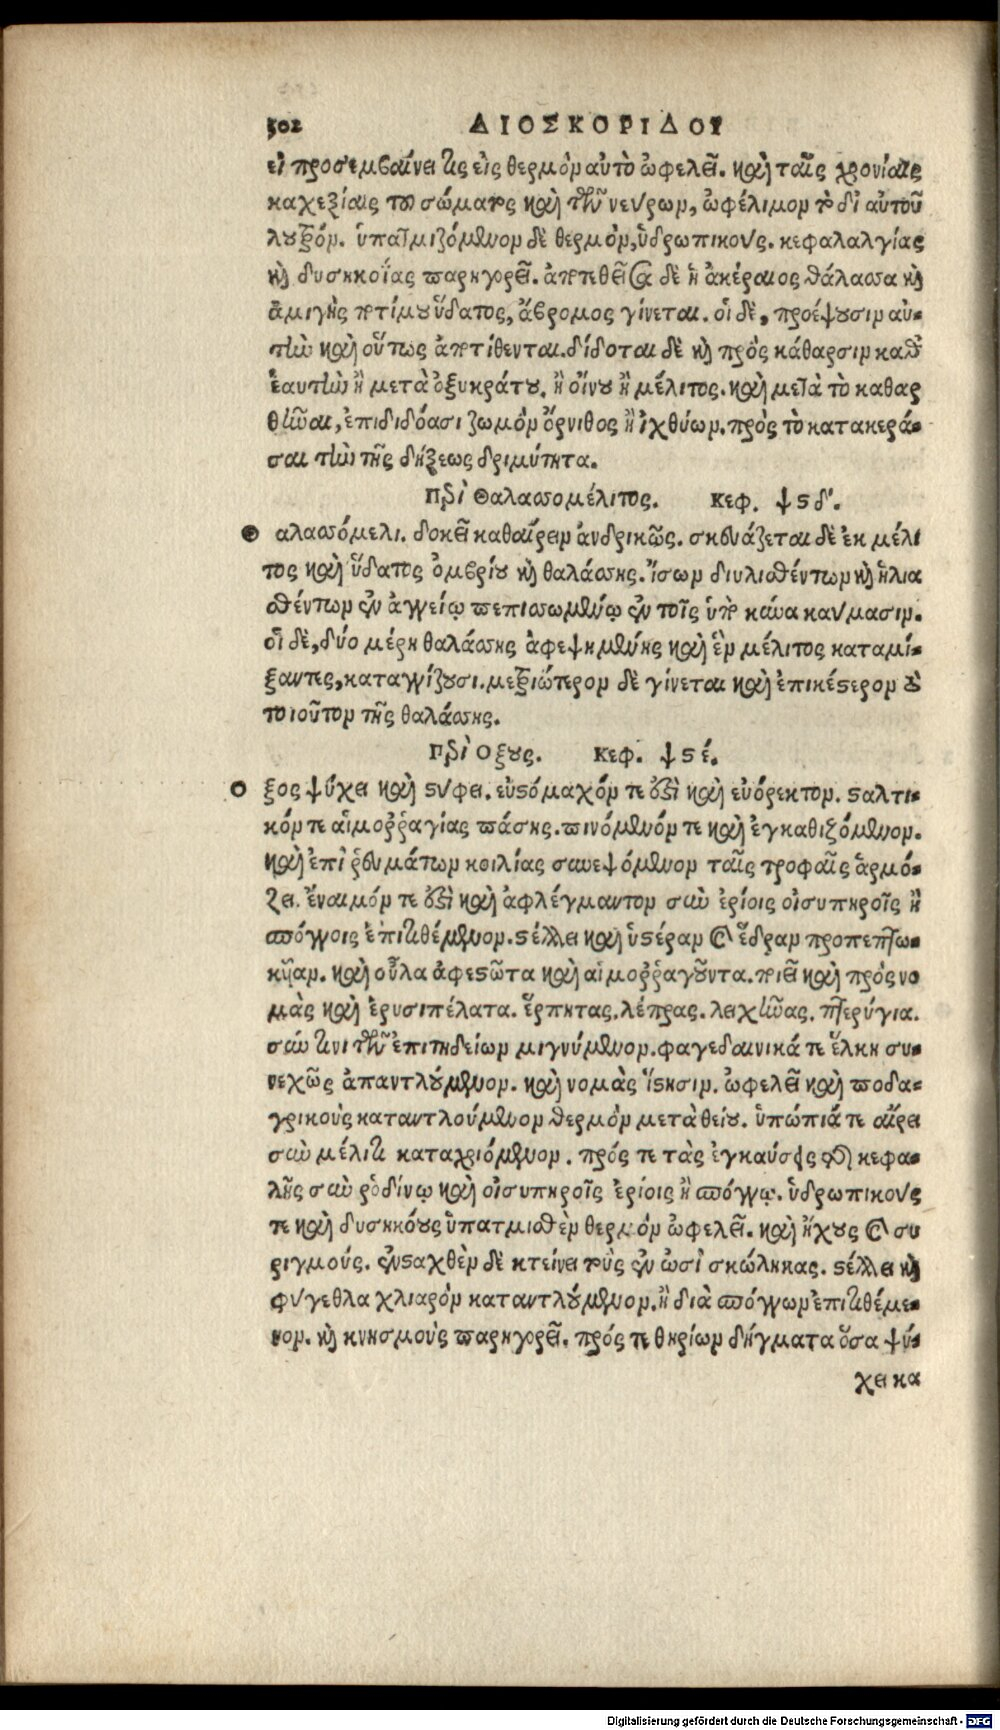 502 ΔΙΟΣΚΟΡΙΔΟΥ
εἰ προσεμβαίνει τις εἰς θερμὸν αὐτὸ ὠφελεῖ. καὶ ταῖς χρονίαις
καχεξίαις τοῦ σώματος καὶ τῶν νεύρων, ὠφέλιμον τὸ δι αὐτοῦ
λουτρόν. ὑπατμιζόμενον δὲ θερμὸν, ὑδρωπικούς. κεφαλαλγίας
καὶ δυσηκοΐας παρηγορεῖ. ἀποτεθεῖσα δὲ ἡ ἀκέραιος θάλασσα καὶ
ἀμιγὴς ποτίμου ὕδατος, ἄβρομος γίνεται. οἱ δὲ, προέψουσιν αὐ-
τὴν καὶ οὕτως ἀποτίθενται. δίδοται δὲ καὶ πρὸς κάθαρσιν καθ᾽
ἑαυτὴν ἢ μετὰ ὀξυκράτου. ἢ οἴνου ἢ μέλιτος. καὶ μετὰ τὸ καθαρ
θῆναι, ἐπιδιδόασι ζωμὸν ὄρνιθος ἢ ἰχθύων. πρὸς τὸ κατακερά-
σαι τὴν τῆς δήξεως δριμύτητα.
Περὶ Θαλασσομέλιτος. Κεφ. ψϛδ´.
Θαλασσόμελι. δοκεῖ καθαίρειν ἀνδρικῶς. σκευάζεται δὲ ἐκ μέλι
τος καὶ ὕδατος ὀμβρίου καὶ θαλάσσης. ἴσων διυλισθέντων καὶ ἡλια
σθέντων ἐν ἀγγείῳ πεπισσωμένῳ ἐν τοῖς ὑπὸ κύνα καύμασιν.
οἱ δὲ, δύο μέρη θαλάσσης ἀφεψημένης καὶ ἓν μέλιτος καταμί-
ξαντες, καταγγίζουσι. μετριώτερον δὲ γίνεται καὶ ἐπικέστερον τὸ
τοιοῦτον τῆς θαλάσσης.
Περὶ Οξους. Κεφ. ψϛέ.
Οξος ψύχει καὶ στύφει. εὐστόμαχόν τε ἐστὶ καὶ εὐόρεκτον. σταλτι-
κόν τε αἱμοῤῥαγίας πάσης. πινόμενόν τε καὶ ἐγκαθιζόμενον.
καὶ ἐπὶ ῥευμάτων κοιλίας συνεψόμενον ταῖς τροφαῖς ἁρμό-
ζει. ἔναιμόν τε ἐστὶ καὶ ἀφλέγμαντον σὺν ἐρίοις οἰσυπηροῖς ἢ
σπόγγοις ἐπιτιθέμενον. στέλλει καὶ ὑστέραν καὶ ἕδραν προπεπτω-
κῦιαν. καὶ οὖλα ἀφεστῶτα καὶ αἱμοῤῥαγοῦντα. ποιεῖ καὶ πρὸς νο
μὰς καὶ ἐρυσιπέλατα. ἕρπητας. λέπρας. λειχῆνας. πτερύγια.
σύν τινι τῶν ἐπιτηδείων μιγνύμενον. φαγεδαινικά τε ἕλκη συ-
νεχῶς ἀπαντλούμενον. καὶ νομὰς ἵστησιν. ὠφελεῖ καὶ ποδα-
γρικοὺς καταντλούμενον θερμὸν μετὰ θείου. ὑπώπιά τε αἴρει
σὺν μέλιτι καταχριόμενον. πρός τε τὰς ἐγκαύσεις τῆς κεφα-
λῆς σὺν ῥοδίνῳ καὶ οἰσυπηροῖς ἐρίοις ἢ σπόγγῳ. ὑδρωπικούς
τε καὶ δυσηκόους ὑπατμισθὲν θερμὸν ὠφελεῖ. καὶ ἤχους καὶ συ
ριγμούς. ἐνσταχθὲν δὲ κτείνει τοὺς ἐν ὠσὶ σκώληκας. στέλλει καὶ
φύγεθλα χλιαρὸν καταντλούμενον. ἢ διὰ σπόγγων ἐπιτιθέμε-
νον. καὶ κνησμοὺς παρηγορεῖ. πρός τε θηρίων δήγματα ὅσα ψύ-
χει κα